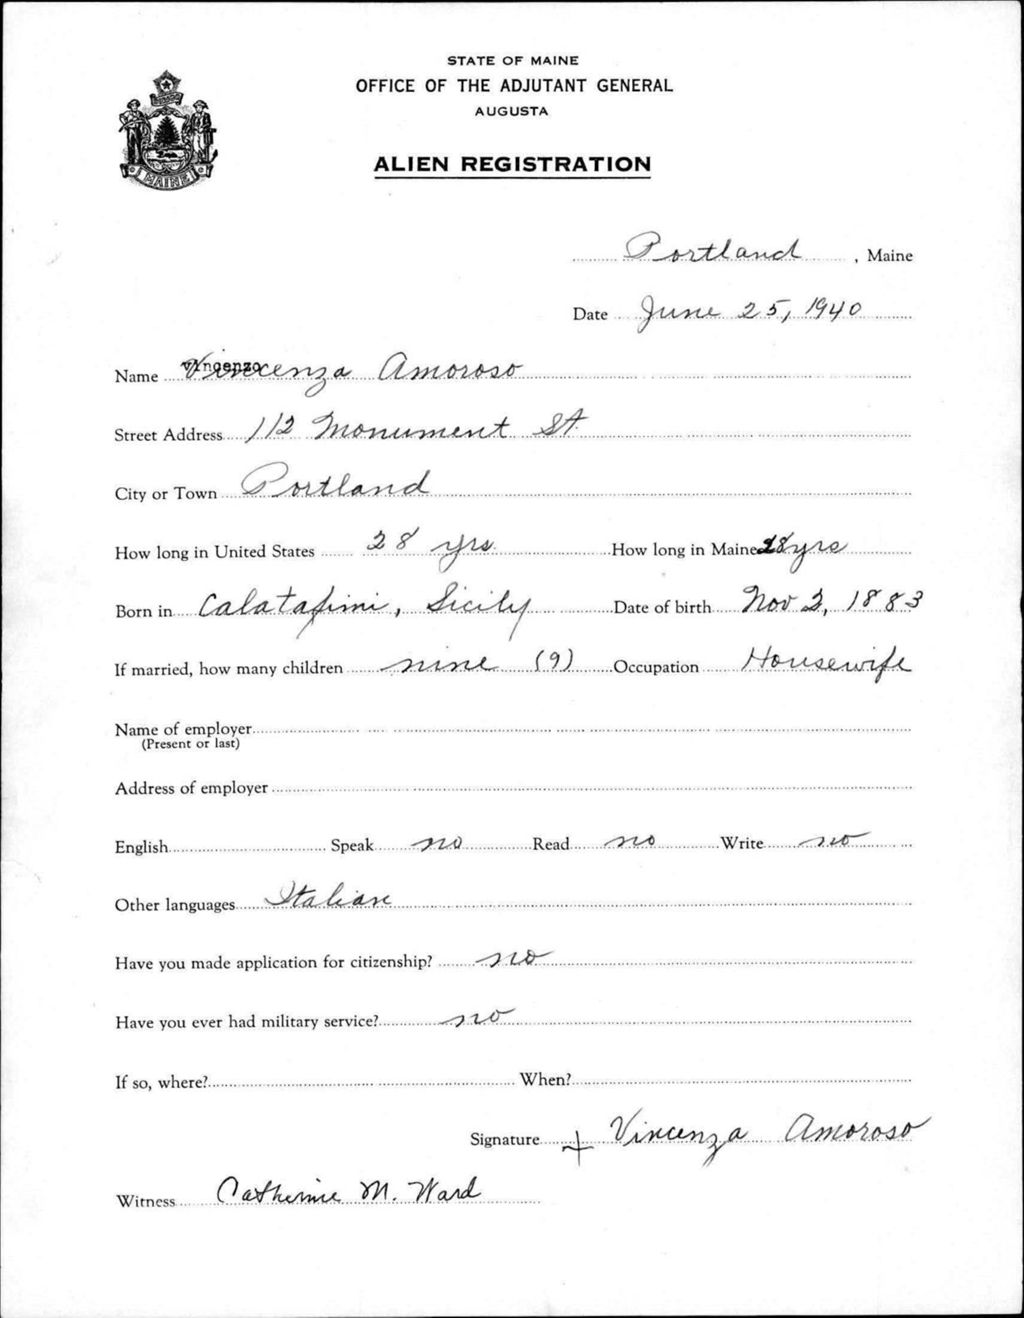 STATE OF MAINE
OFFICE OF THE ADJUTANT GENERAL
AUGUSTA
MAINE
ALIEN REGISTRATION
Portland, Maine
Date June 25, 1940
Name Vincenza Amoroso
Street Address 112 Monument St.
City or Town Portland
How long in United States 28 yrs. How long in Maine 28 yrs
Born in Calatafimi, Sicily Date of birth Nov 2, 1883
If married, how many children nine (9) Occupation Housewife
Name of employer
(Present or last)
Address of employer
English Speak no Read no Write no
Other languages Italian
Have you made application for citizenship? no
Have you ever had military service? no
If so, where? When?
Signature + Vincenza Amoroso
Witness Catherine M. Ward